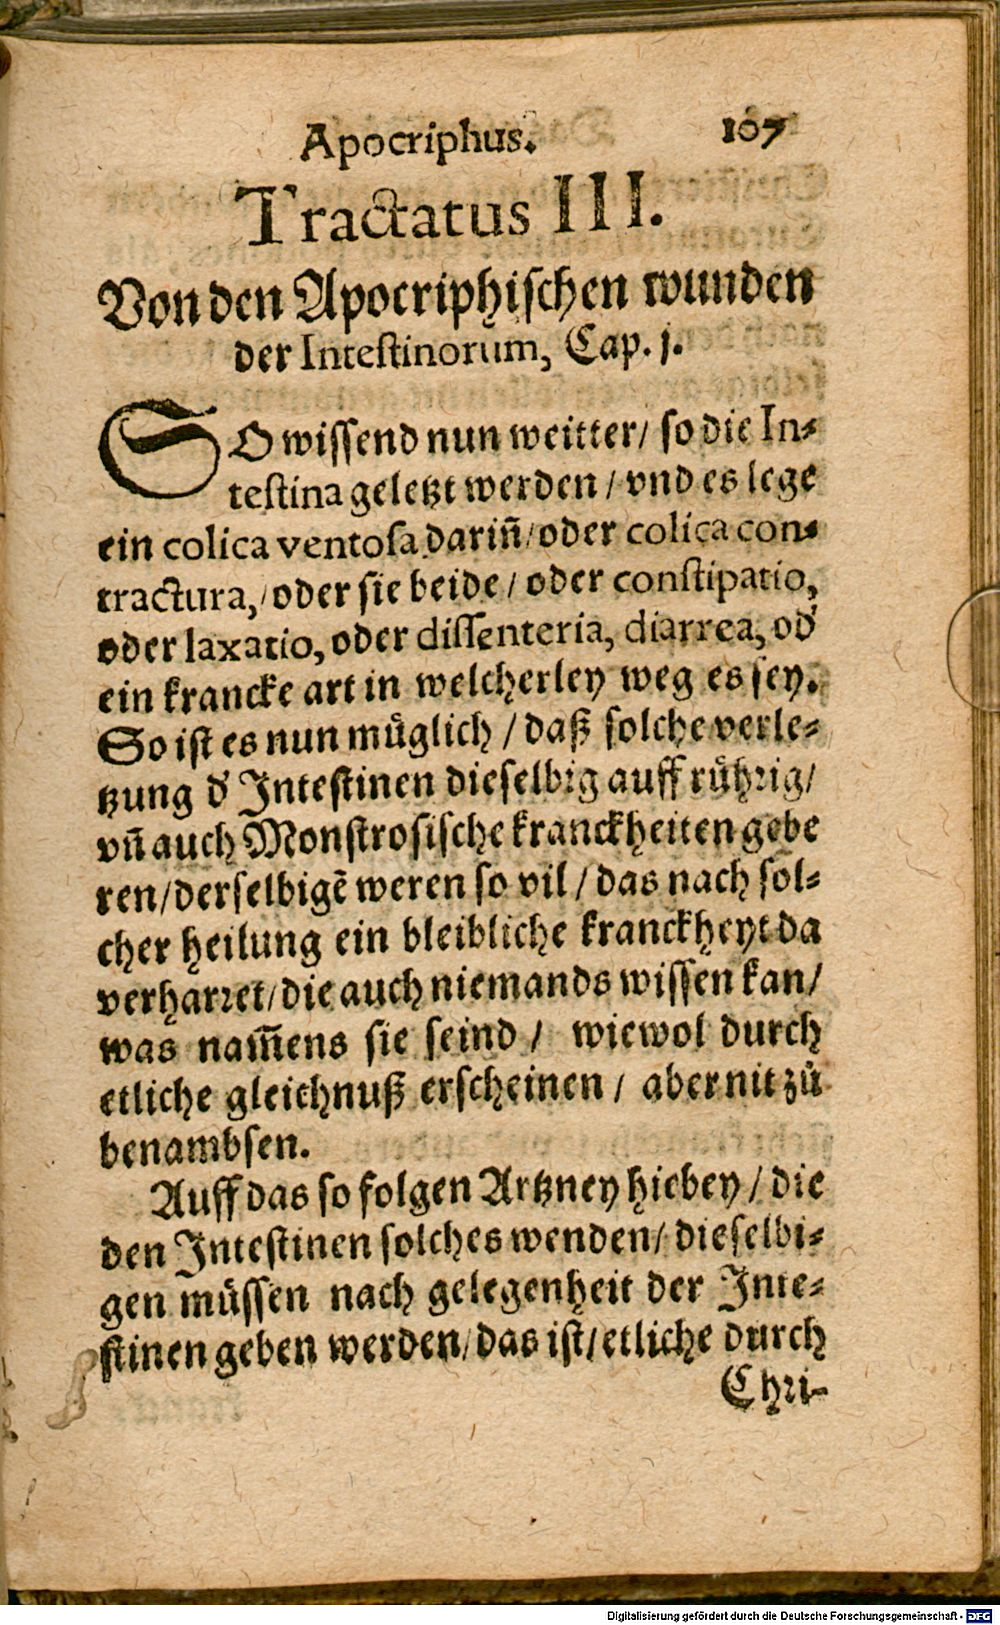 Apocriphus. 107
Tractatus III.
Von den Apocriphischen wunden
der Intestinorum, Cap. j.
SO wissend nun weitter / so die In-
testina geletzt werden / vnd es lege
ein colica ventosa dariñ / oder colica con-
tractura, / oder sie beide / oder constipatio,
oder laxatio, oder dissenteria, diarrea, od'
ein krancke art in welcherley weg es sey.
So ist es nun müglich / daß solche verle-
tzung d' Intestinen dieselbig auff rührig /
vñ auch Monstrosische kranckheiten gebe
ren / derselbigẽ weren so vil / das nach sol-
cher heilung ein bleibliche kranckheyt da
verharret / die auch niemands wissen kan /
was nam̃ens sie seind / wiewol durch
etliche gleichnuß erscheinen / aber nit zů
benambsen.
Auff das so folgen Artzney hiebey / die
den Intestinen solches wenden / dieselbi-
gen müssen nach gelegenheit der Inte-
stinen geben werden / das ist / etliche durch
Chri-
Digitalisierung gefördert durch die Deutsche Forschungsgemeinschaft - DFG